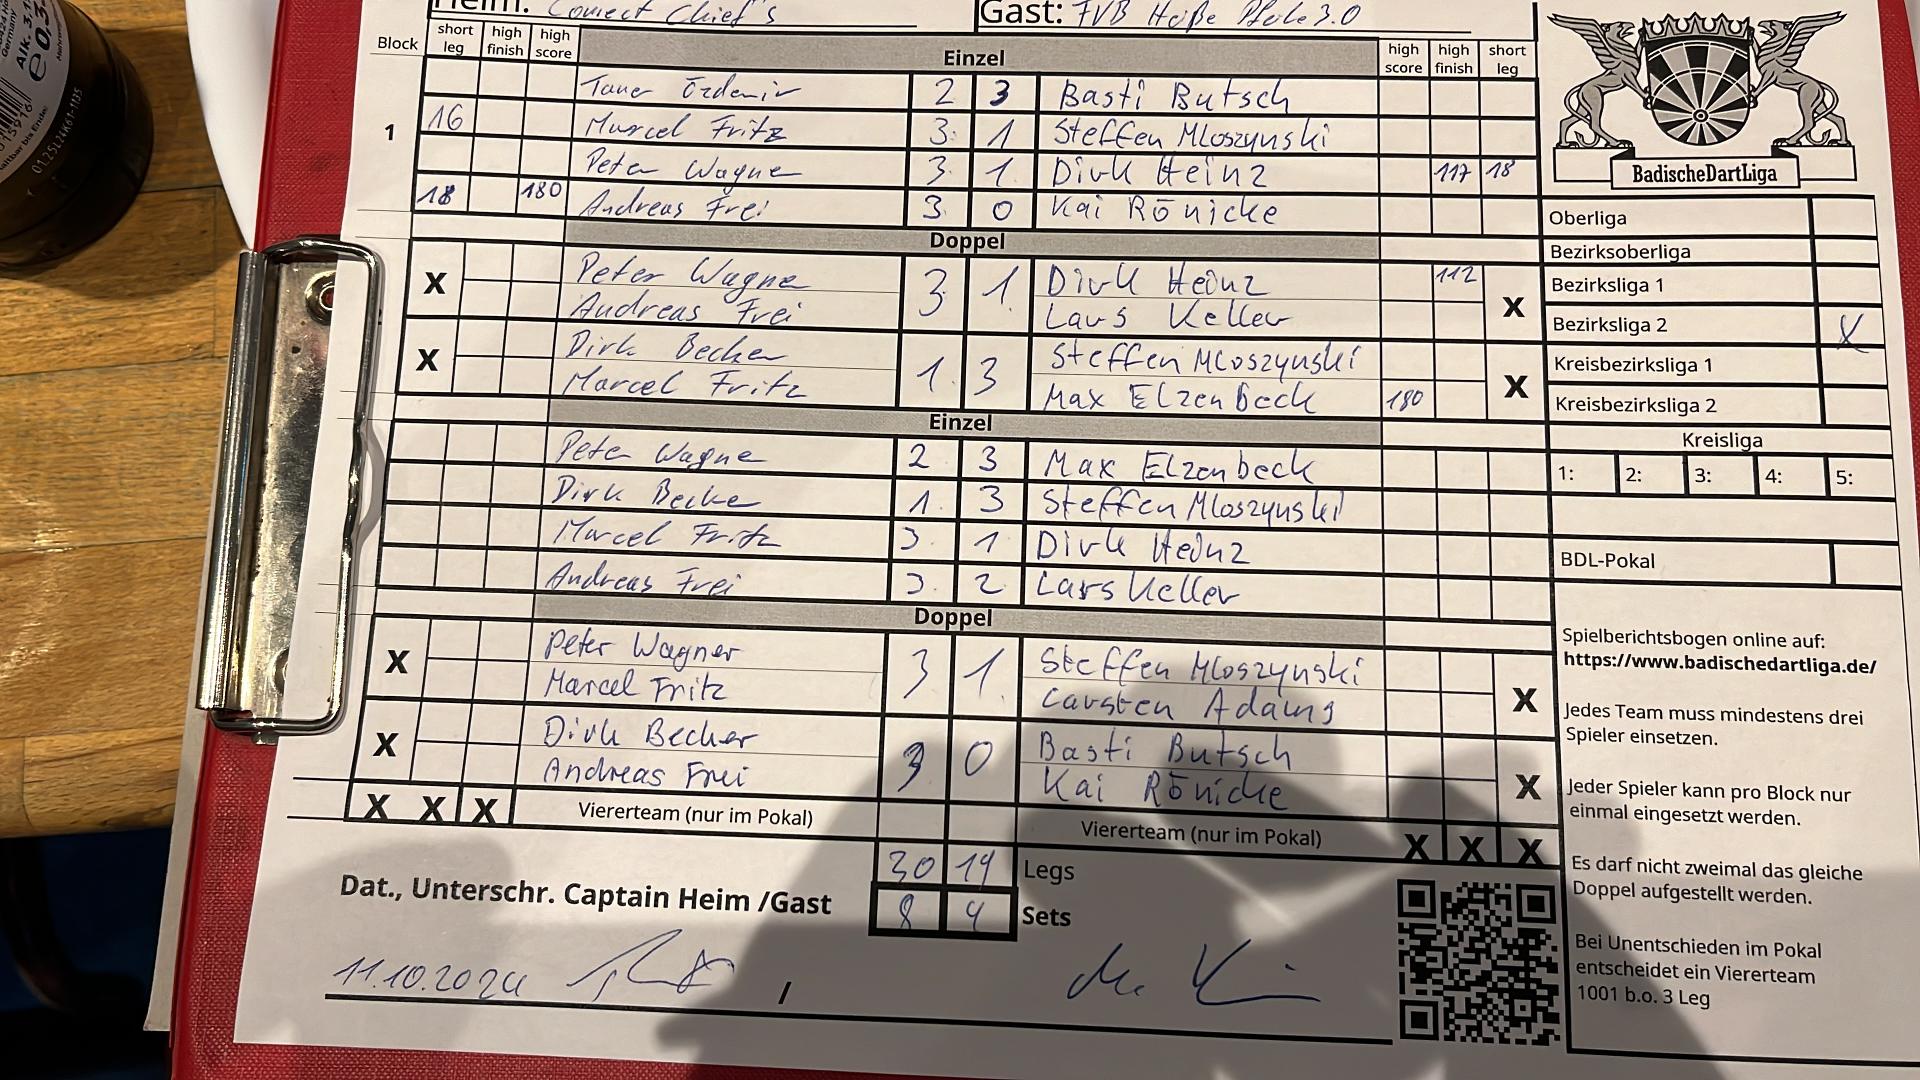 Heim: Connect Chief's Gast: FVB Heiße Pfeile 3.0
Block short leg high finish high score Einzel high score high finish short leg
Taner Özdemir 2 3 Basti Butsch
1 16 Marcel Fritz 3 1 Steffen Mloszynski
Peter Wagner 3 1 Dirk Heinz 117 18
18 180 Andreas Frei 3 0 Kai Rönicke
Doppel
X Peter Wagne 3 1 Dirk Heinz 112 X
Andreas Frei Lars Keller
X Dirk Becker 1 3 Steffen Mloszynski X
Marcel Fritz Max Elzenbeck 180
Einzel
Peter Wagne 2 3 Max Elzenbeck
Dirk Becke 1 3 Steffen Mloszynski
Marcel Fritz 3 1 Dirk Heinz
Andreas Frei 3 2 Lars Keller
Doppel
X Peter Wagner 3 1 Steffen Mloszynski X
Marcel Fritz Carsten Adams
X Dirk Becker 3 0 Basti Butsch X
Andreas Frei Kai Rönicke
X X X Viererteam (nur im Pokal) Viererteam (nur im Pokal) X X X
30 19 Legs
8 4 Sets
Dat., Unterschr. Captain Heim /Gast
11.10.2024 /
BadischeDartLiga
Oberliga
Bezirksoberliga
Bezirksliga 1
Bezirksliga 2 X
Kreisbezirksliga 1
Kreisbezirksliga 2
Kreisliga
1: 2: 3: 4: 5:
BDL-Pokal
Spielberichtsbogen online auf:
https://www.badischedartliga.de/
Jedes Team muss mindestens drei
Spieler einsetzen.
Jeder Spieler kann pro Block nur
einmal eingesetzt werden.
Es darf nicht zweimal das gleiche
Doppel aufgestellt werden.
Bei Unentschieden im Pokal
entscheidet ein Viererteam
1001 b.o. 3 Leg